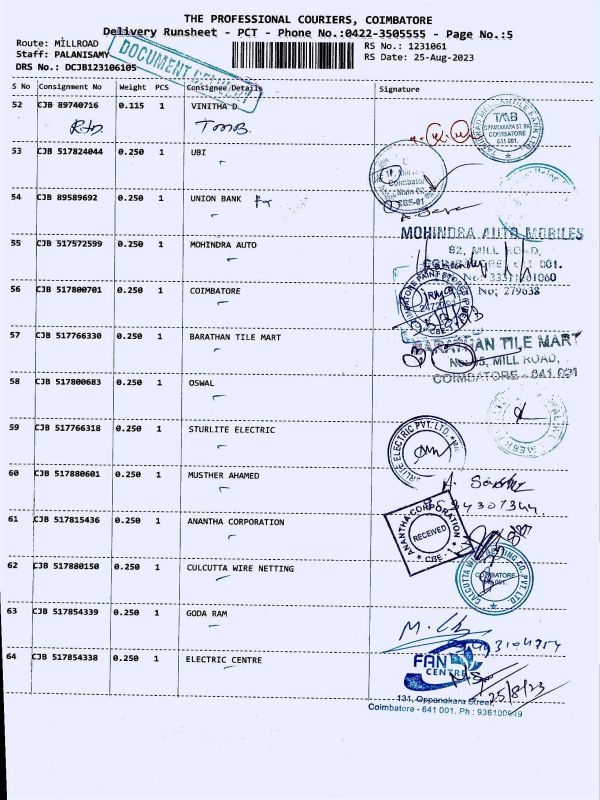 THE PROFESSIONAL COURIERS, COIMBATORE
Delivery Runsheet - PCT - Phone No.:0422-3505555 - Page No.:5
Route: MILLROAD
RS No.: 1231061
Staff: PALANISAMY
RS Date: 25-Aug-2023
DRS No.: DCJB123106105
DOCUMENT
S No Consignment No Weight PCS Consignee Details Signature
52 CJB 89740716 0.115 1 VINITHA D
TMB
TMB
OPPANAKARA ST. BR.
COIMBATORE
641 001.
53 CJB 517824044 0.250 1 UBI
Coimbatore
CBE-01
54 CJB 89589692 0.250 1 UNION BANK
55 CJB 517572599 0.250 1 MOHINDRA AUTO
MOHINDRA AUTO MOBILES
82, MILL ROAD,
001.
56 CJB 517800701 0.250 1 COIMBATORE
No; 279638
COIMBATORE PAINT STORES
57 CJB 517766330 0.250 1 BARATHAN TILE MART
BARATHAN TILE MART
MILL ROAD,
COIMBATORE - 641 001
58 CJB 517800683 0.250 1 OSWAL
59 CJB 517766318 0.250 1 STURLITE ELECTRIC
ELECTRIC PVT. LTD.
60 CJB 517880601 0.250 1 MUSTHER AHAMED
61 CJB 517815436 0.250 1 ANANTHA CORPORATION
ANANTHA CORPORATION
RECEIVED
* CBE - 1 *
62 CJB 517880150 0.250 1 CULCUTTA WIRE NETTING
CALCUTTA WIRE NETTING CO. PVT. LTD.
COIMBATORE
63 CJB 517854339 0.250 1 GODA RAM
64 CJB 517854338 0.250 1 ELECTRIC CENTRE
FAN
CENTRE
25/8/23
131, Oppanakara Street,
Coimbatore - 641 001. Ph :